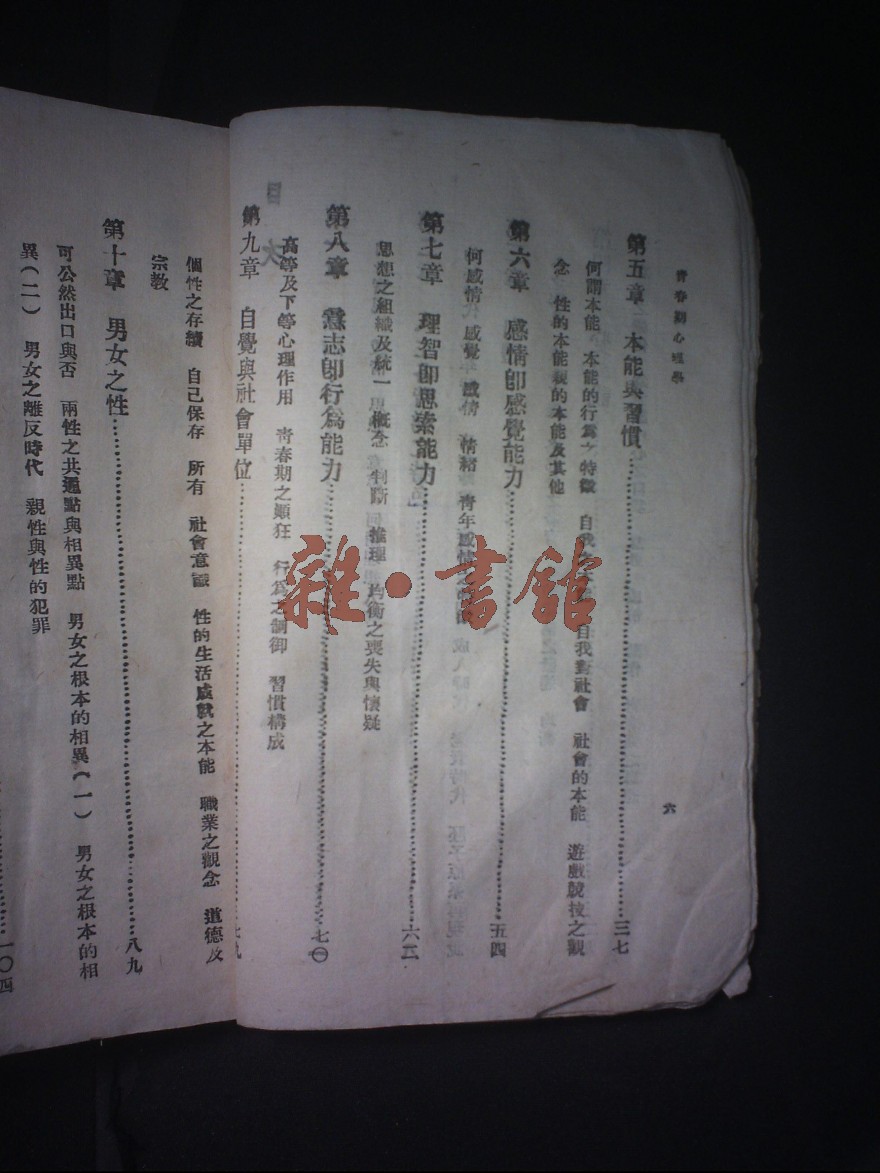 青春期心理學
六
第五章 本能與習慣 三七
何謂本能 本能的行爲之特徵 自我 自我對社會 社會的本能 遊戲競技之觀
念 性的本能親的本能及其他
第六章 感情卽感覺能力 五四
何感情 感覺 感情 情緒 青年感情
第七章 理智卽思索能力 六二
思想之組織及統一 概念 判斷 推理 均衡之喪失與懷疑
第八章 意志卽行爲能力 七〇
高等及下等心理作用 靑春期之顚狂 行爲之制御 習慣構成
第九章 自覺與社會單位 七九
個性之存續 自己保存 所有 社會意識 性的生活成就之本能 職業之觀念 道德及
宗教
第十章 男女之性 八九
可公然出口與否 兩性之共通點與相異點 男女之根本的相異(一) 男女之根本的相
異(二) 男女之離反時代 親性與性的犯罪
一〇四
雜·書館